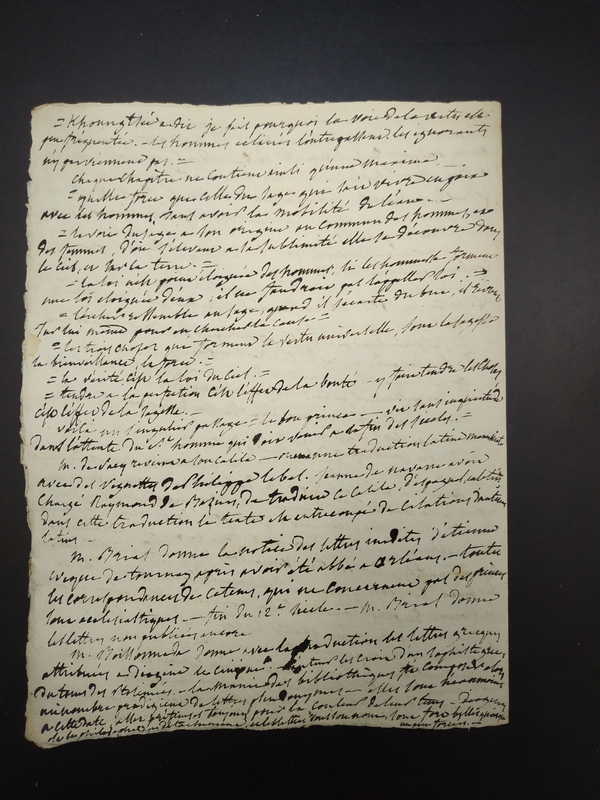 = Khoungtsée a dit je sais pourquoi la voie de la vertu est
peu fréquentée. - les hommes éclairés l'outrepassent. les ignorants
n'y parviennent pas. =
chaque chapitre ne contient ainsi qu'une maxime -.
= quelle force que celle du sage qui sait vivre en paix
avec les hommes, sans avoir la mobilité de l'eau. -
= la voie du sage a son origine au commun des hommes, et
des femmes, d'où s'élevant a la sublimité elle se découvre dans
le ciel, et sur la terre. =
= la loi n'est point éloignée des hommes, si les hommes se forment
une loi éloignée d'eux, il ne faudrait pas l'appeller loi. =
= l'archer ressemble au sage, quand il s'écarte du but, il
sur lui même pour en chercher la cause =
= les trois choses qui forment la vertu universelle, sont la sagesse
la bienveillance la force. =
= la vérité c'est la loi du ciel. =
= tendre a la perfection c'est l'effet de la bonté - y faire tendre les choses
c'est l'effet de la sagesse. -
voila un singulier passage = le bon prince - vit sans inquiétude
dans l'attente du st. homme qui doit venir a la fin des siecles. =
M. de Sacy revient a son calila - une traduction latine manuscrite
avec des vignettes de Philippe le bel. Jeanne de navarre avoit
chargé Raymond de Beziers, de traduire le Calila d'espagnol en latin
dans cette traduction le texte est entrecoupé de citations d'auteurs
latins. -
M. Brial donne la notice des lettres inedites d'étienne
eveque de tournay après avoir été abbé a orléans. - toutes
les correspondances de ce tems, qui ne concernent pas des princes
sont ecclesiastiques. - fin du 12e. siecle. - M. Brial donne
les lettres non publiées encore
M. Boissonade donne avec la traduction les lettres grecques
attribuées a diogène le cinique. les croit d'un sophiste grec
du tems des Ptolemées. - la manie des bibliothèques fit composer alors
un nombre prodigieux de lettres pseudonymes. - elles sont néanmoins
a cette date, pour la couleur de leur tems. -
de la philosophie, et les lettres sous son nom, sont fort